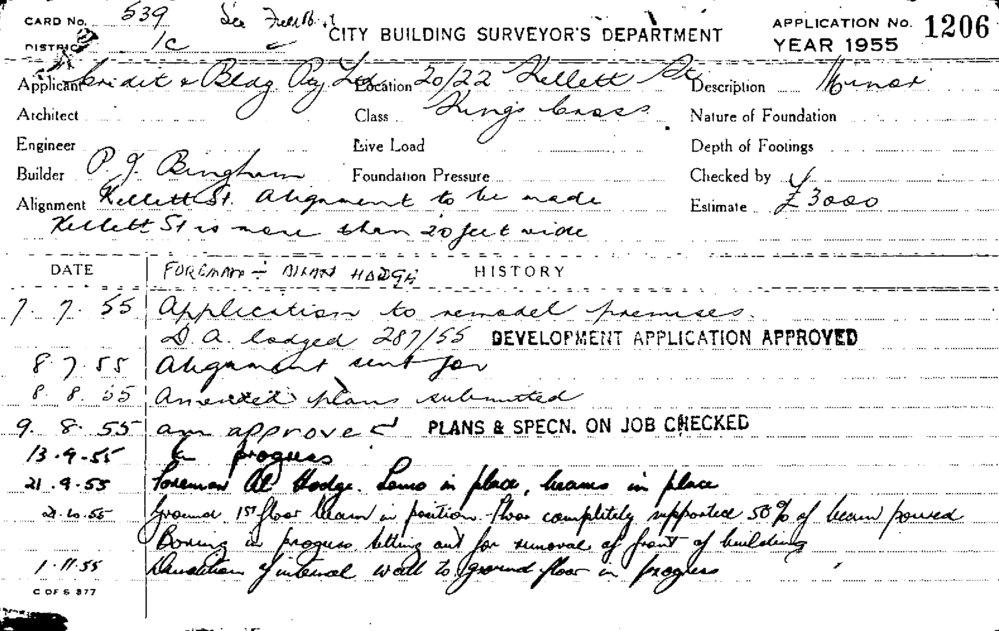 CARD No. 539 See
DISTRICT 1c
CITY BUILDING SURVEYOR'S DEPARTMENT
APPLICATION No. 1206
YEAR 1955
Applicant Credit & Bldg Pty Ltd Location 20/22 Kellett St Description Minor
Architect Class Kings Cross Nature of Foundation
Engineer Live Load Depth of Footings
Builder P. J. Bingham Foundation Pressure Checked by
Alignment Kellett St. Alignment to be made Estimate £3000
Kellett St is more than 20 feet wide
DATE FOREMAN - ALLAN HODGE HISTORY
7. 7. 55 Application to remodel premises.
D. A. lodged 287/55 DEVELOPMENT APPLICATION APPROVED
8 7. 55 Alignment sent for
8. 8. 55 Amended plans submitted
9. 8. 55 am approved PLANS & SPECN. ON JOB CHECKED
13.9.55 In progress
21.9.55 Foreman Al Hodge. in place, beams in place
21.10.55 Ground 1st floor beam in position floor completely supported 50% of beam poured
Boxing in progress setting out for removal of front of building
1.11.55 Demolition of internal wall to ground floor in progress
C OF S 877